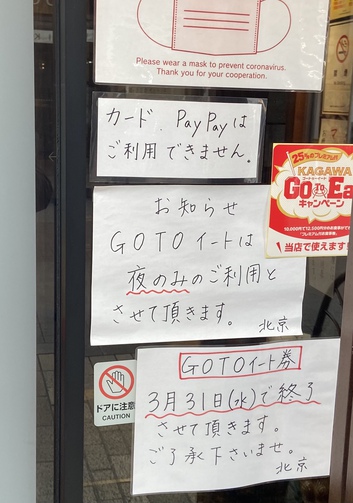 Please wear a mask to prevent coronavirus.
Thank you for your cooperation.
カード、PayPayは
ご利用できません。
25%のプレミアム付
KAGAWA
Go To Ea
キャンペーン
10,000円で12,500円分のお食事ができ
"プレミアム付食事券"
当店で使えます!
お知らせ
GOTOイートは
夜のみのご利用と
させて頂きます。
北京
GOTOイート券
3月31日(水)で終了
させて頂きます。
ご了承下さいませ。
北京
ドアに注意
CAUTION